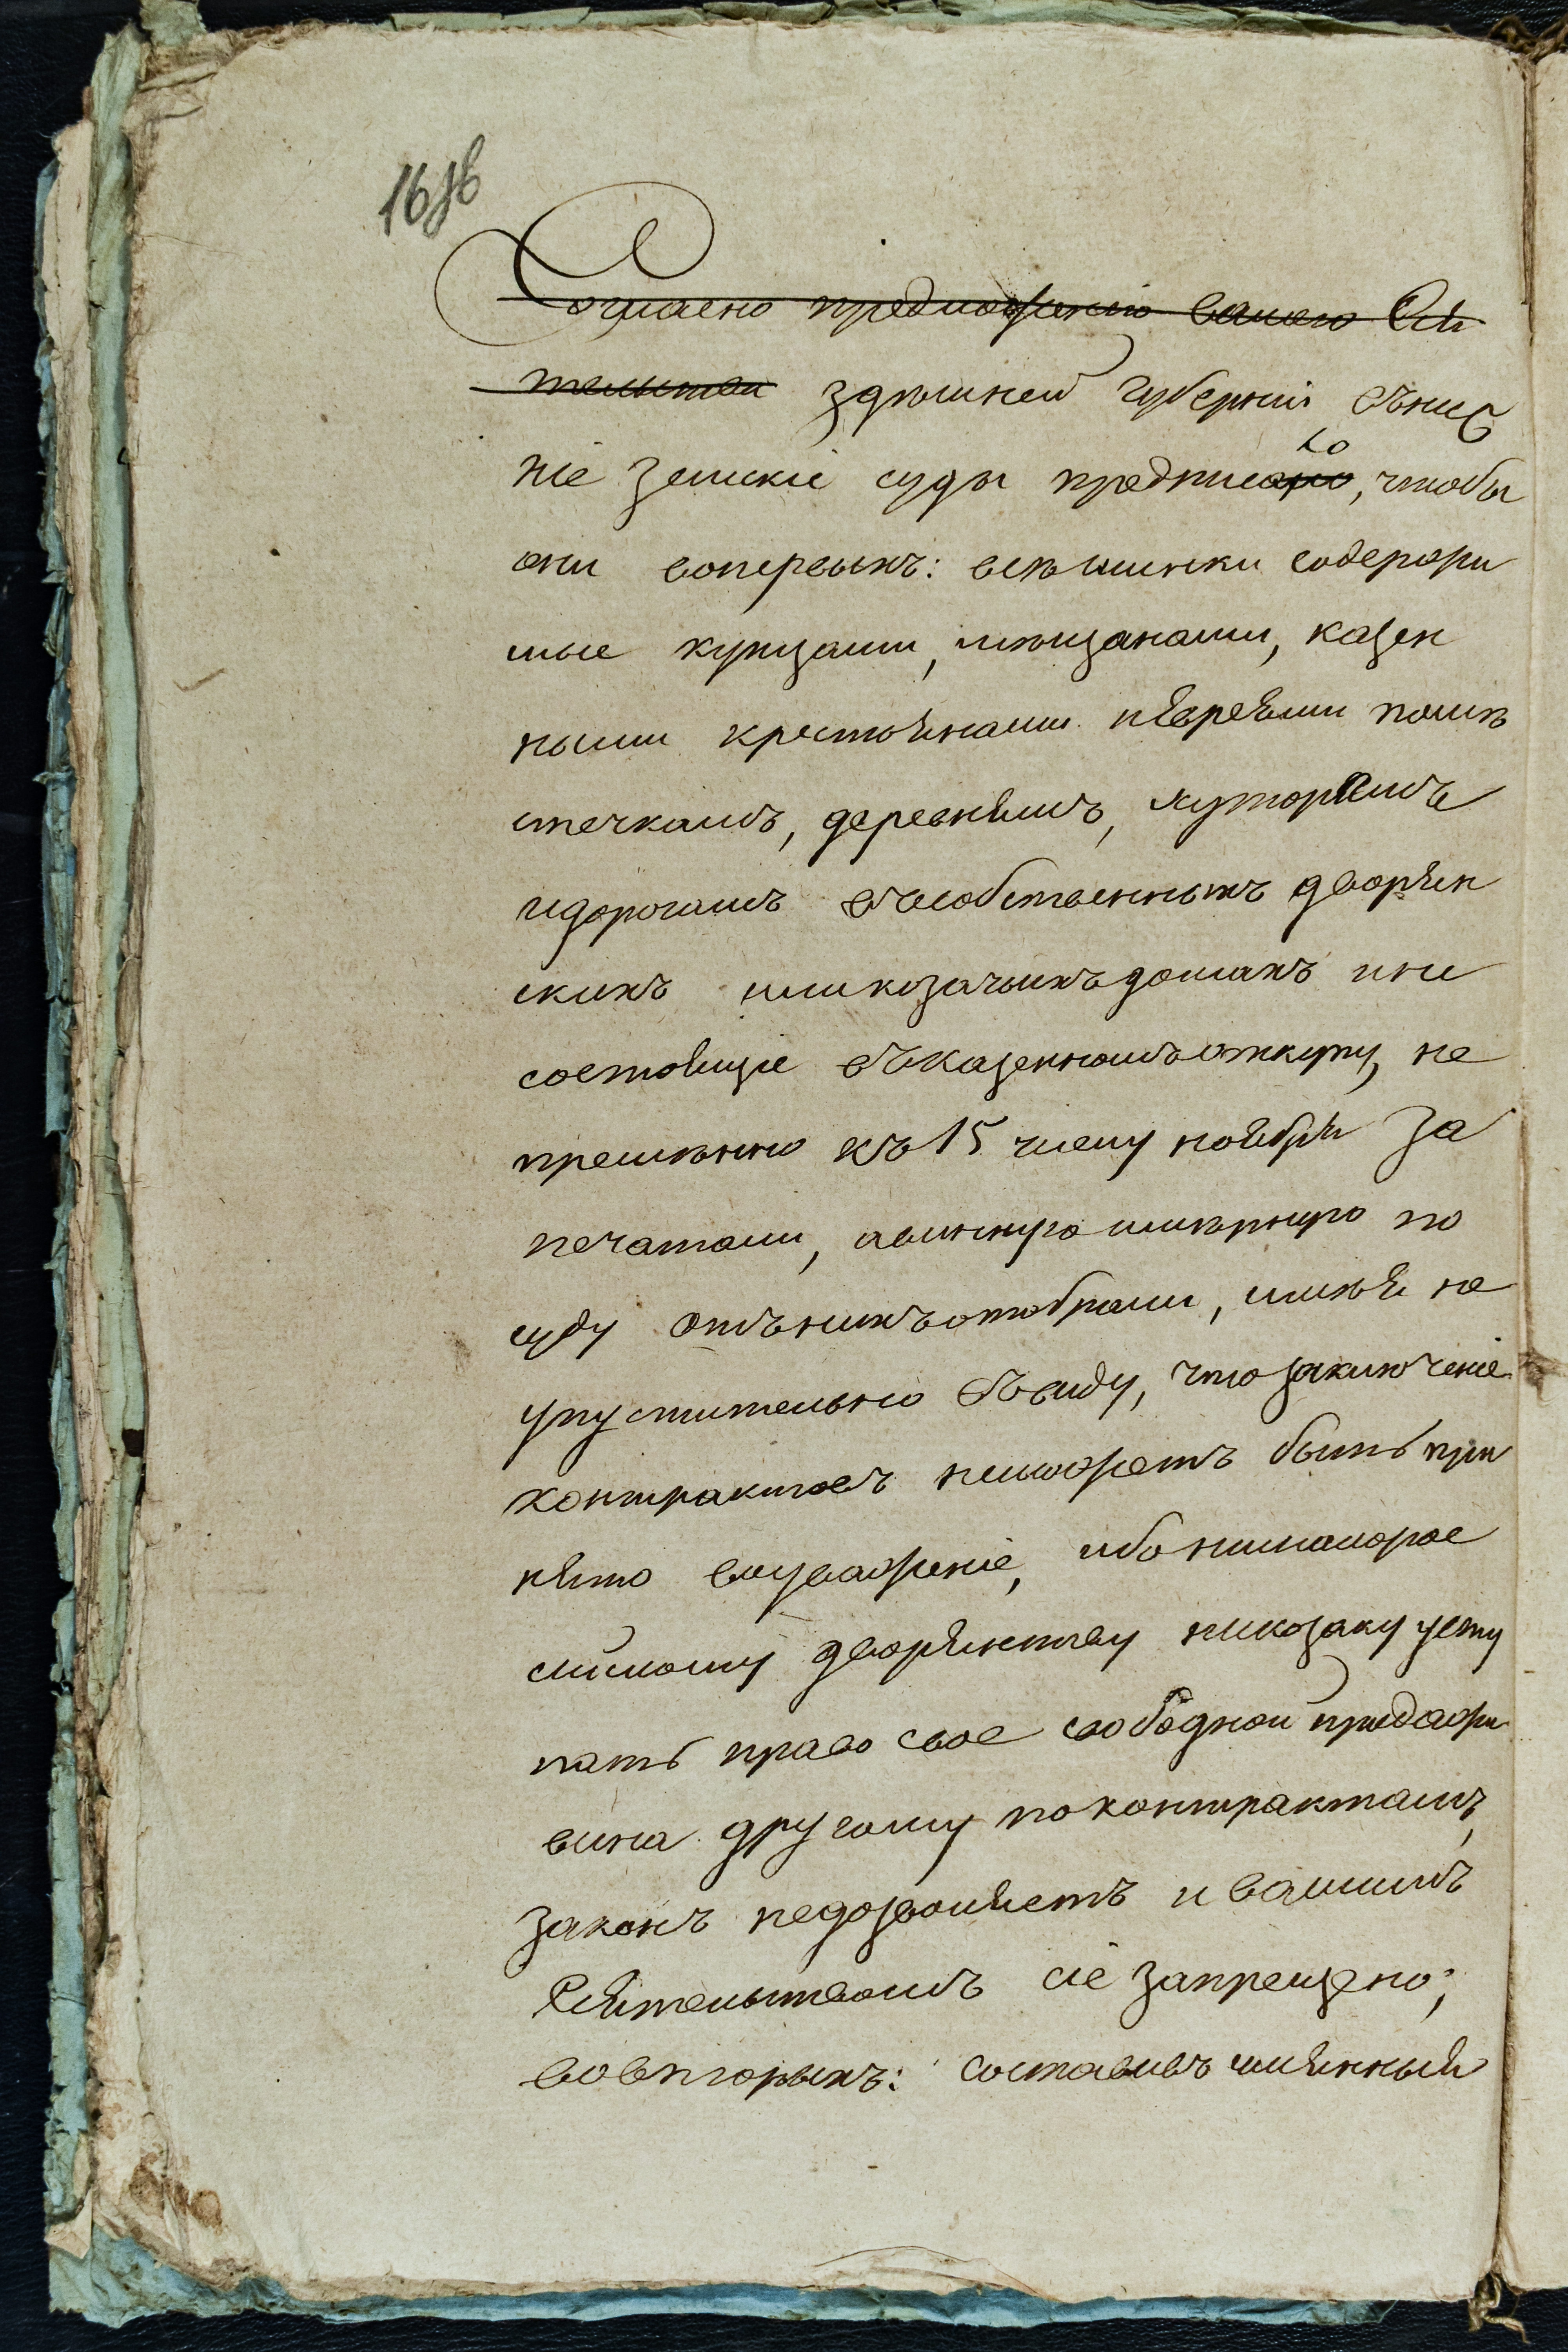 16
Согласно предложенію вашего Сія
тельства здѣшней губерніи внис
ніе земскіе суды предписано, чтобы
ло
они вопервыхъ: всѣ шинки содержи
мые купцами, мѣщанами, казен
ными крестьянами иевреями помѣ
стечкамъ, деревнямъ, хуторамъ
идорогамъ въсобственныхъ дворян
скихъ иликозачьихъ домахъ ине
состоящіе въказенномъ откупу, не
премѣнно къ 15 числу ноября за
печатали, авинную имѣрную по
суду отънихъ отобрали, имѣя не
упустительно въвиду, что заключеніе
контрактовъ неможетъ быть при
нято вуваженіе, ибо ниималорос
сійскому дворянству никозаку усту
пать право свое свободной продажи
вина другому по контрактамъ,
законъ недозволяетъ и вашимъ
Сіятельствомъ сіе запрещено;
вовторыхъ: составивъ имянный